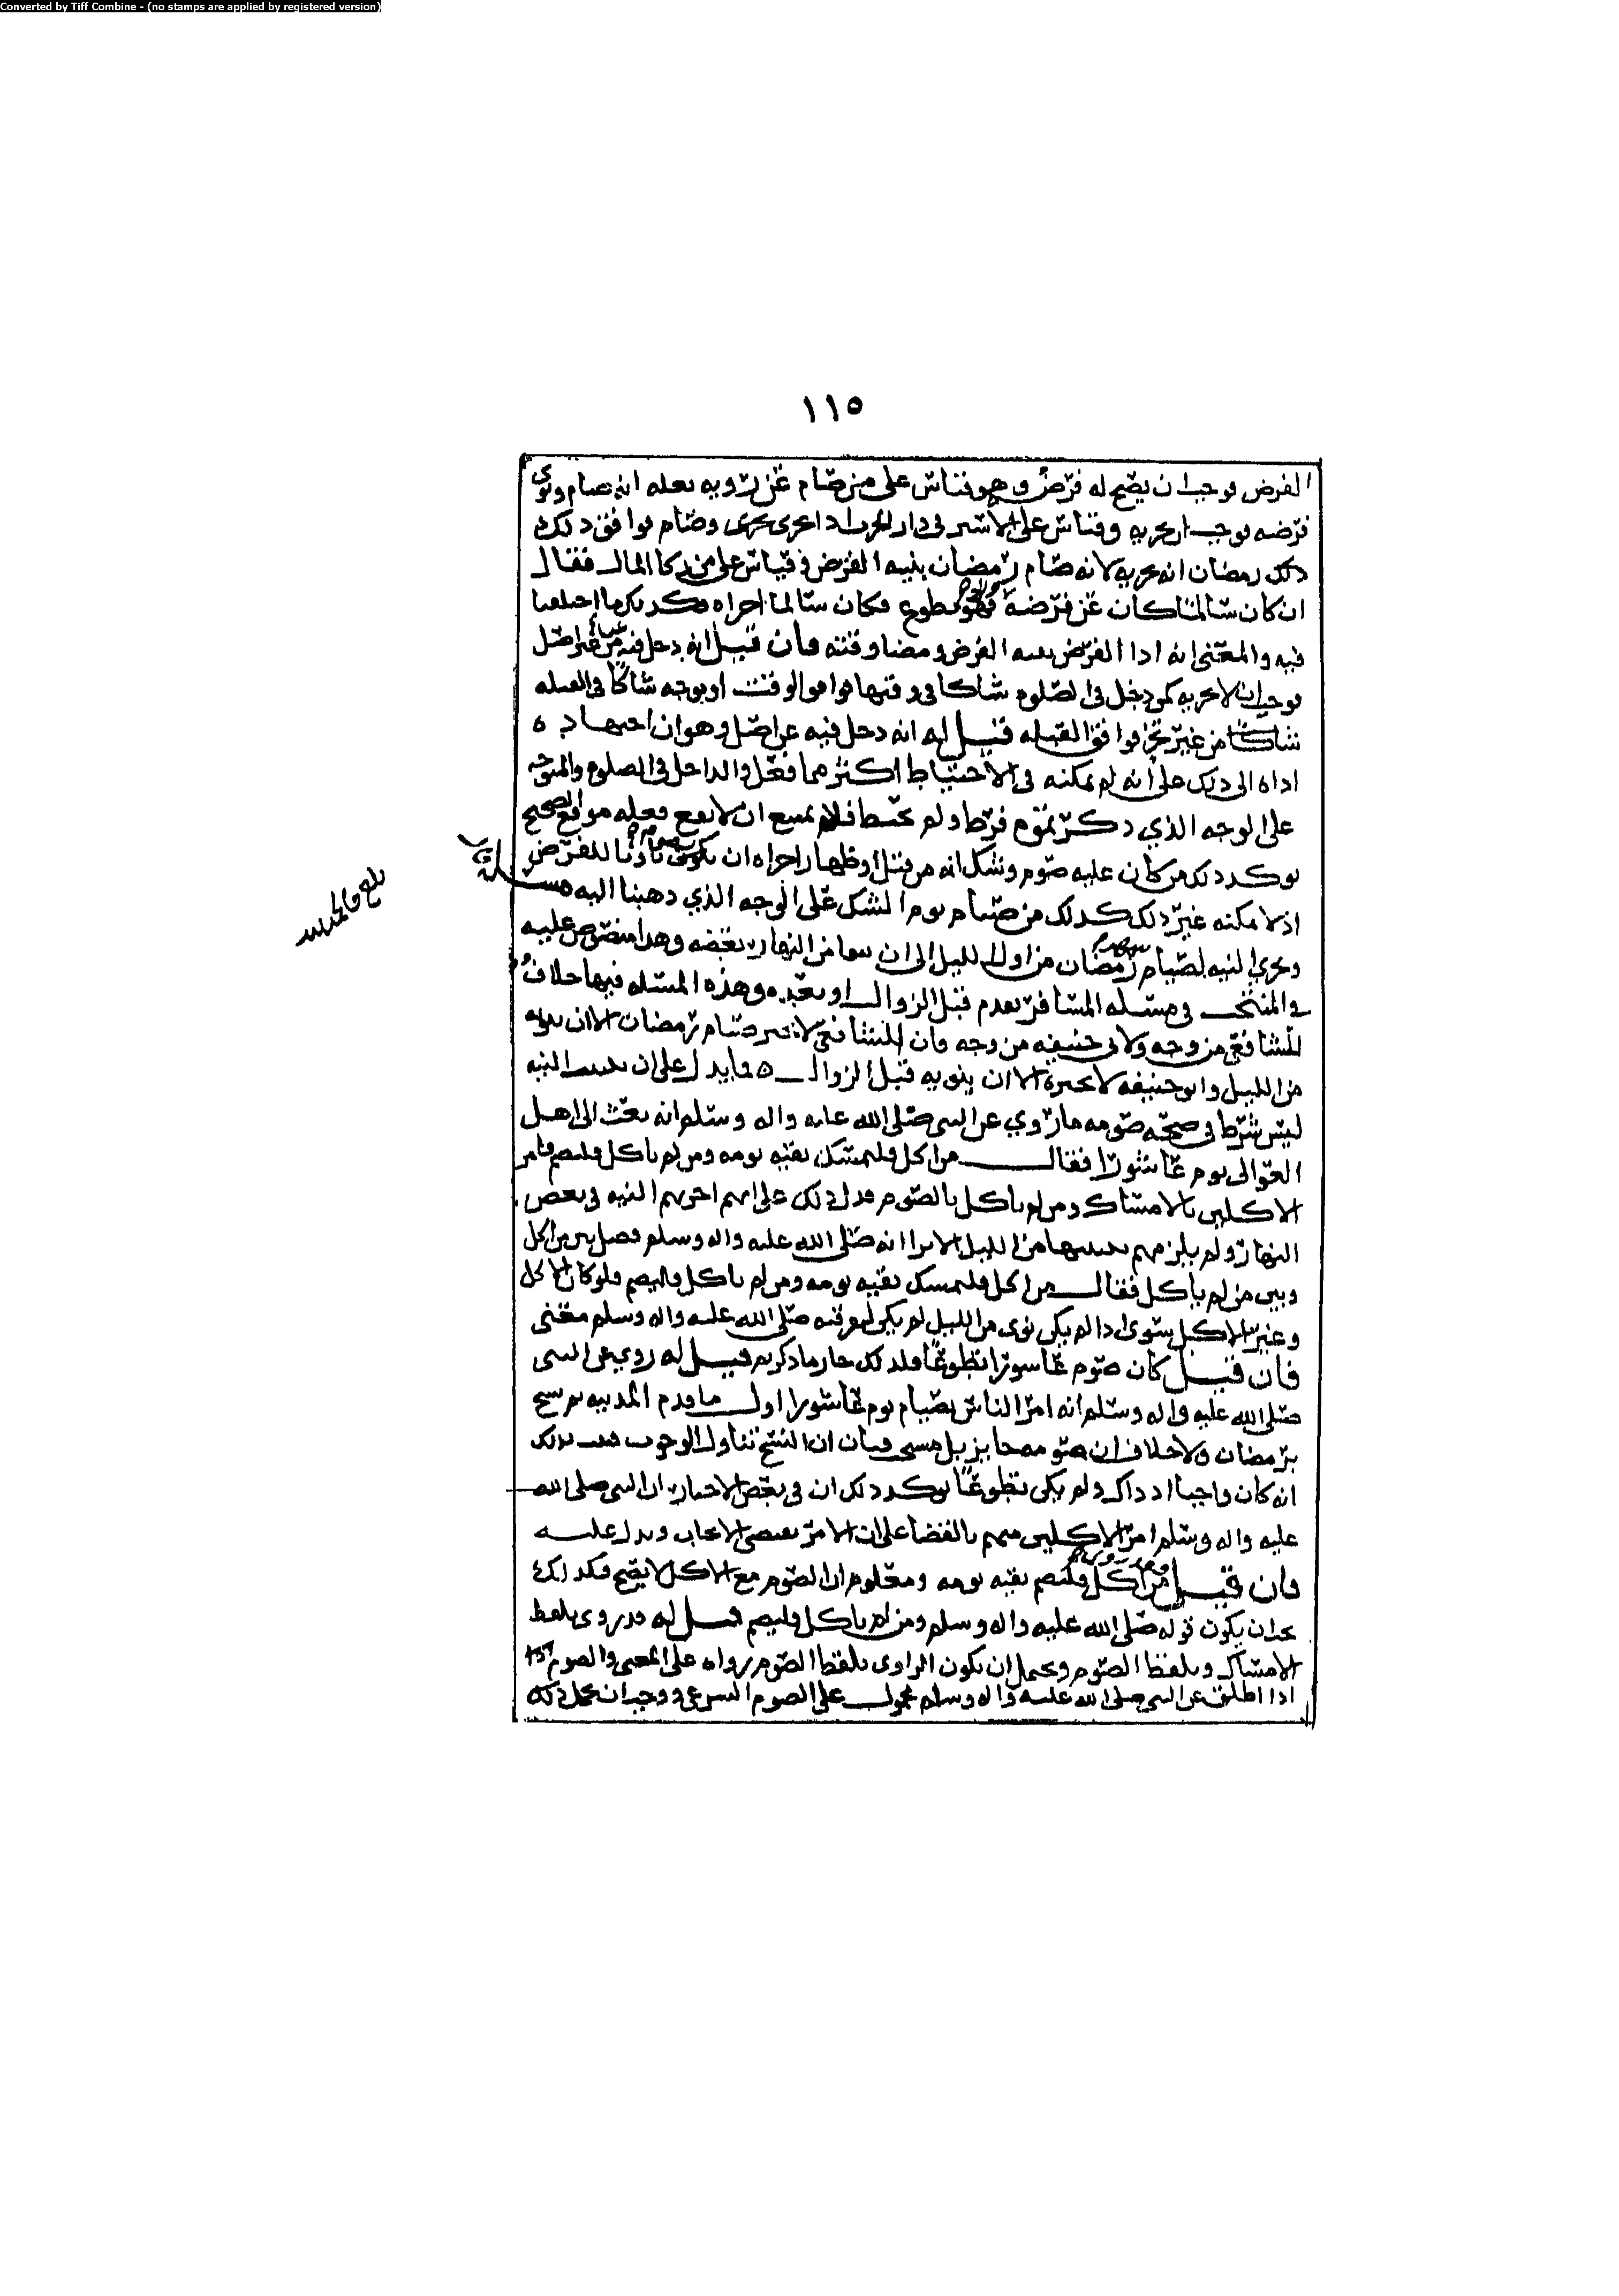 Converted by Tiff Combine - (no stamps are applied by registered version)
١١٥
الفرض فوجب ان يصح له فرضه وهو قياس على من صام عن رويه بعله انه صام ونوى
فرضه فوجب ان يجزيه وقياس على الاسير في دار الحرب اذا تحرى وصام فوافق ذلك
ذلك رمضان انه يجزيه لانه صام رمضان بنيه الفرض وقياس على من زكا المال فقال
ان كان سالما كان عن فرضه فهو تطوع فكان سالما اجزاه
فيه والمعنى انه ادا الفرض بنيه الفرض ومضا وقته فان قيل انه دخل فيه من غير اصل
فوجب ان لا يجزيه كمن دخل في الصلوه شاكا في وقتها فوافق الوقت او توجه شاكا في القبله
شاكا من غير تحر فوافق القبله قيل له انه دخل فيه عن اصل وهو ان اجتهاده
اداه الى ذلك على انه لم يمكنه في الاحتياط اكثر مما فعل والداخل في الصلوه والمتوجه
على الوجه الذي ذكرتموه فرط ولم يحتط فلم يمتنع ان لا يقع فعله موقع الصحيح
يوكد ذلك من كان عليه صوم وشك انه من قتل او ظهار اجزاه ان يكون ناويا للفرض
اذ لا يمكنه غير ذلك كذلك من صيام يوم الشك على الوجه الذي ذهبنا اليه مسئله
وتجزي النيه لصيام شهر رمضان من اول الليل الى ان يبقا من النهار بعضه وهذا منصوص عليه
في المنتخب في مسئله المسافر يقدم قبل الزوال او بعده وهذه المسئله فيها خلاف
للشافعي من وجه ولابي حنيفه من وجه فان الشافعي لا يجيز صيام رمضان الا ان ينويه
من الليل وابو حنيفه لا يجيزه الا ان ينويه قبل الزوال ه فما يدل على ان تبييت النيه
ليس شرط في صحه صومه ما روي عن النبي صلى الله عليه واله وسلم انه بعث الى اهل
العوالى يوم عاشورا فقال من اكل فليمسك بقيه يومه ومن لم ياكل فليصم فامر
الاكلين بالامساك ومن لم ياكل بالصوم فدل ذلك على انهم اجزتهم النيه في بعض
النهار ولم يلزمهم تبييتها من الليل الا ترا انه صلى الله عليه واله وسلم فصل بين من اكل
وبين من لم ياكل فقال من اكل فليمسك بقيه يومه ومن لم ياكل فليصم فلو كان الاكل
وغير الاكل سوى اذا لم يكن نوى من الليل لم يكن لفرقه صلى الله عليه واله وسلم معنى
فان قيل كان صوم عاشورا تطوعا فلذلك جاز ما ذكرتم قيل له روي عن النبي
صلى الله عليه واله وسلم انه امر الناس بصيام يوم عاشورا اول ما قدم المدينه ثم نسخ
برمضان ولا خلاف ان صومه جايز بل مستحب فبان ان النسخ تناول الوجوب فثبت بذلك
انه كان واجبا اذ ذاك ولم يكن تطوعا يوكد ذلك ان في بعض الاخبار ان النبي صلى الله
عليه واله وسلم امر الاكلين منهم بالقضا على ان الامر يقتضي الايجاب ويدل عليه
فان قيل فقد روي من اكل فليصم بقيه يومه ومعلوم ان الصوم مع الاكل لا يصح فكذلك
يجب ان يكون قوله صلى الله عليه واله وسلم ومن لم ياكل فليصم قيل له قد روى بلفظ
الامساك وبلفظ الصوم ويحتمل ان يكون الراوى بلفظ الصوم رواه على المعنى والصوم
اذا اطلق عن النبي صلى الله عليه واله وسلم محمول على الصوم الشرعي ووجب ان يحمل ذلك